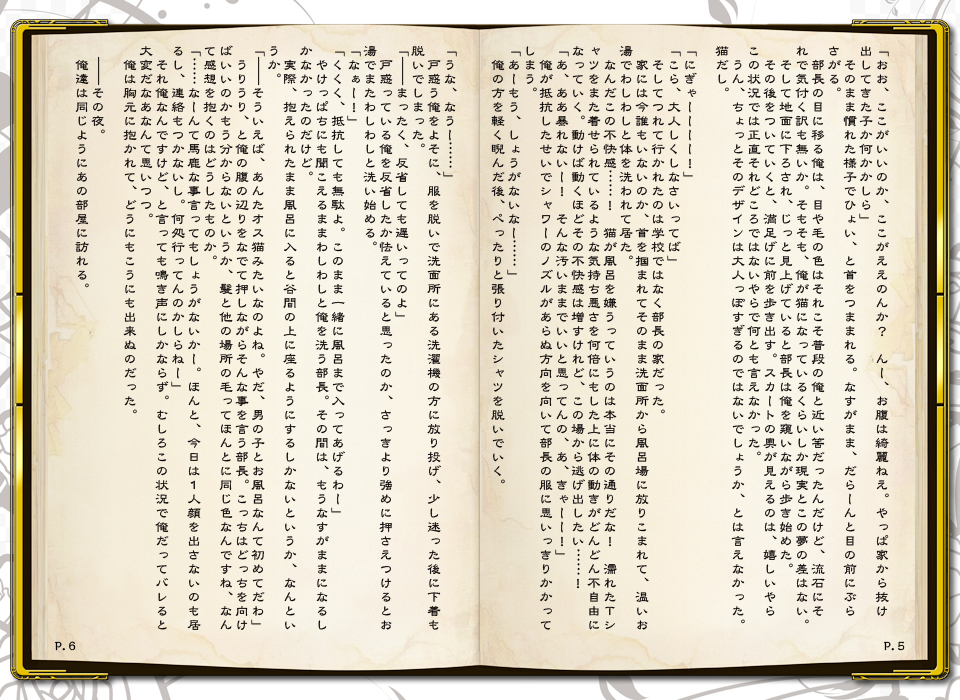 「おお、ここがいいのか、ここがええのんか？　んー、お腹は綺麗ねえ。やっぱ家から抜け
出してきた子か何かかしら」
そのまま慣れた様子でひょい、と首をつままれる。なすがまま、だらーんと目の前にぶら
さがる。
部長の目に移る俺は、目や毛の色はそれこそ普段の俺と近い筈だったんだけど、流石にそ
れで気付く訳も無いか。そもそも、俺が猫になっているくらいしか現実とこの夢の差はない。
そして地面に下ろされ、じっと見上げていると部長は俺を窺いながら歩き始めた。
その後をついていくと、満足げに前を歩き出す。スカートの奥が見えるのは、嬉しいやら
この状況では正直それどころではないやらで何とも言えなかった。
うん、ちょっとそのデザインは大人っぽすぎるのではないでしょうか、とは言えなかった。
猫だし。
「にぎゃーーーー！」
「こら、大人しくしなさいってば」
そしてつれて行かれたのは学校ではなく部長の家だった。
家には今誰もいないのか、首を掴まれてそのまま洗面所から風呂場に放りこまれて、温いお
湯でわしわしと体を洗われて居た。
なんだこの不快感……！　猫が風呂を嫌うっていうのは本当にその通りだな！　濡れたTシ
ャツをまた着せられているような気持ち悪さを何倍にもした上に体の動きがどんどん不自由に
なっていく。動けば動くほどその不快感は増すけれど、この場から逃げ出したい……！
「あ、ああ暴れないー！　そんな汚いままでいいと思ってんの、あ、きゃーー！」
俺が抵抗したせいでシャワーのノズルがあらぬ方向を向いて部長の服に思いっきりかかって
しまう。
「あーもう、しょうがないなー……」
俺の方を軽く睨んだ後、ぺったりと張り付いたシャツを脱いでいく。
P.5
「うな、なうー……」
戸惑う俺をよそに、服を脱いで洗面所にある洗濯機の方に放り投げ、少し迷った後に下着も
脱いでしまった。
「――まったく、反省しても遅いってのよ」
戸惑っている俺を反省したか怯えていると思ったのか、さっきより強めに押さえつけるとお
湯でまたわしわしと洗い始める。
「なぁー！」
「くくく、抵抗しても無駄よ。このまま一緒に風呂まで入ってあげるわー」
やけっぱちにも聞こえるままわしわしと俺を洗う部長。その間は、もうなすがままになるし
かなかったのだけど。
実際、抱えられたまま風呂に入ると谷間の上に座るようにするしかないというか、なんとい
うか。
「――そういえば、あんたオス猫みたいなのよね。やだ、男の子とお風呂なんて初めてだわ」
うりうり、と俺の腹の辺りをなでて押しながらそんな事を言う部長。こっちはどっちを向け
ばいいのかもう分からないというか、髪と他の場所の毛ってほんとに同じ色なんですね、なん
て感想を抱くのはどうしたものか。
「……なーんて馬鹿な事言ってもしょうがないかー。ほんと、今日は１人顔を出さないのも居
るし、連絡もつかないし。何処行ってんのかしらねー」
それ俺なんですけど、と言っても鳴き声にしかならず。むしろこの状況で俺だってバレると
大変だなあなんて思いつつ。
俺は胸元に抱かれて、どうにもこうにも出来ぬのだった。
――その夜。
俺達は同じようにあの部屋に訪れる。
P.6